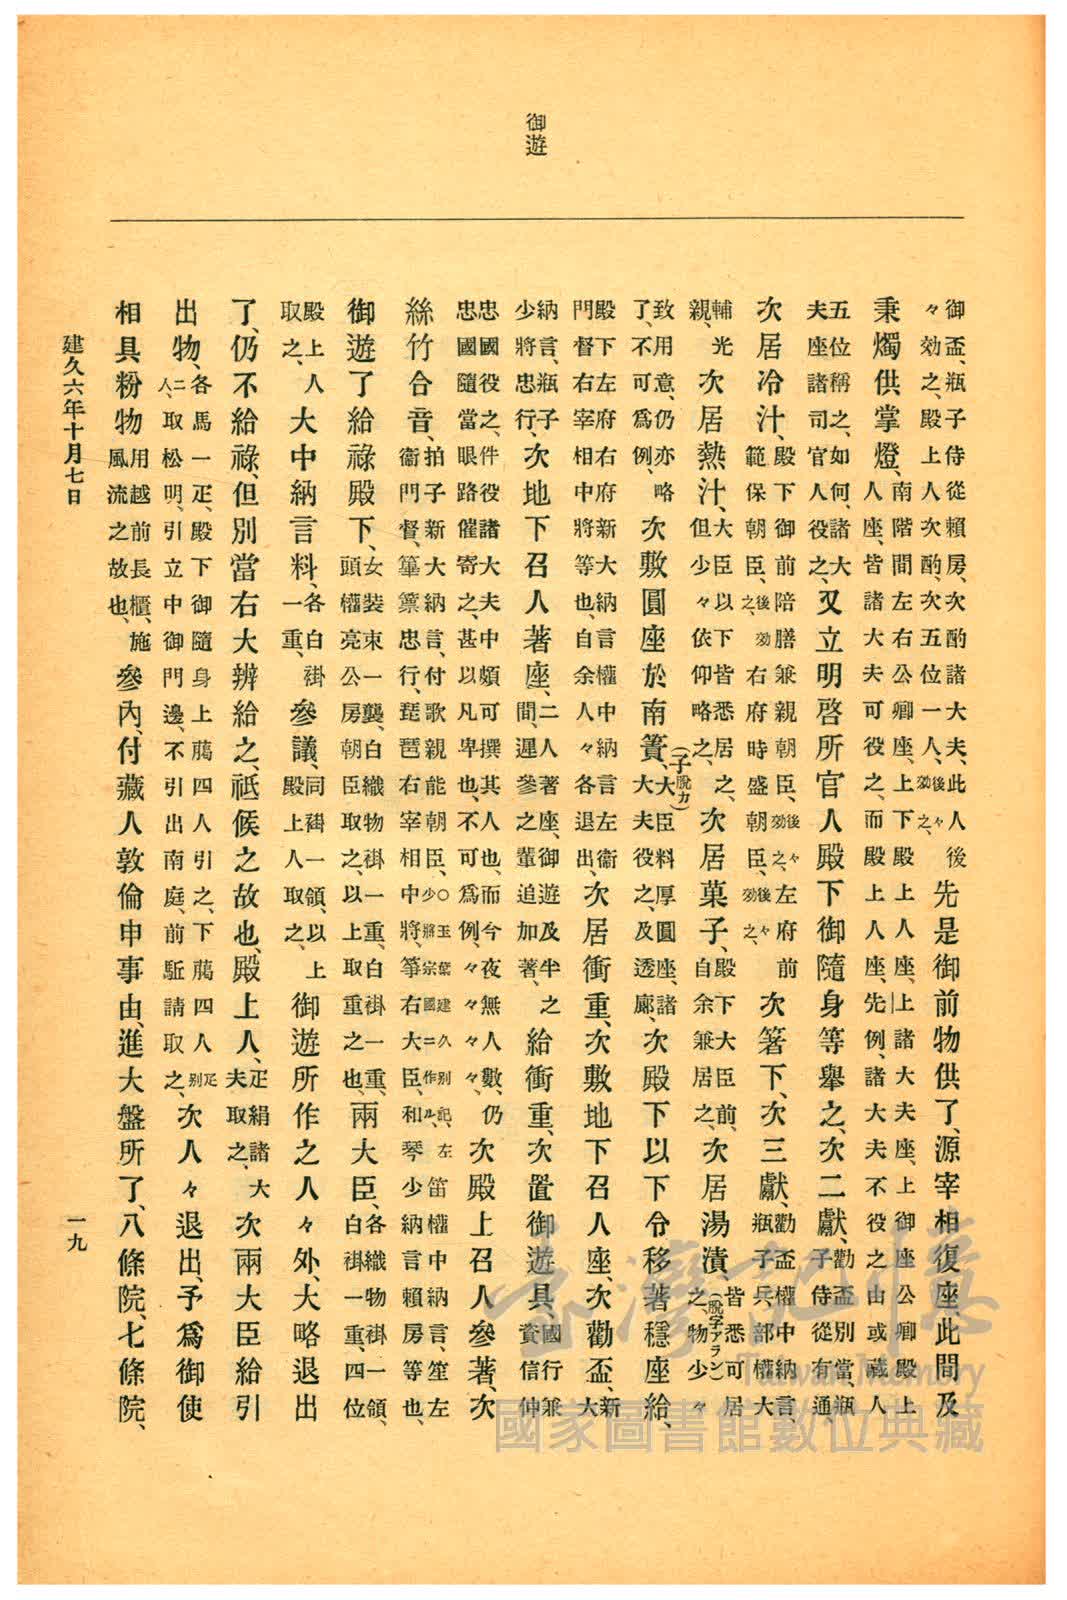 御遊
御盃、瓶子侍從賴房、次酌諸大夫、此人後
々効之、殿上人次酌、次五位一人、後々効之、
先是御前物供了、源宰相復座、此間及
秉燭供掌燈、
南階間左右公卿座、上下殿上人座、上諸大夫座、上御座公卿殿上
人座、皆諸大夫可役之、而殿上人座、先例、諸大夫不役之由或藏人
五位稱之、如何、諸大
夫座諸司官人役之、
又立明啓所官人殿下御隨身等舉之、次二獻、
勸盃別當、瓶
子侍從有通
次居冷汁、
殿下御前陪膳兼親朝臣、後々効之、左府前
範保朝臣、後効之、右府時盛朝臣、後々効之、
次箸下、次三獻、
勸盃權中納言、
瓶子兵部權大
輔光
親、
次居熱汁、
大臣以下皆悉居之、
但少々依仰略之、
次居菓子、
殿下大臣前、
自余兼居之、
次居湯漬、
皆悉可居
之、物少々
(脫字アラン)
致用意、仍亦略
了、不可爲例、
次敷圓座於南簀、
(子脫カ)
大臣料厚圓座、諸
大夫役之、及透廊、
次殿下以下令移著穩座給、
殿下左府右府新大納言權中納言左衞
門督右宰相中將等也、自余人々各退出、
次居衝重、次敷地下召人座、次勸盃、
新
大
納言、瓶子
少將忠行、
次地下召人著座、
二人著座、御遊及半之
間、遲參之輩追加著、
給衝重、次置御遊具、
國行兼
資信仲
忠國役之、件役諸大夫中頗可撰其人也、而今夜無人數、仍
忠國隨當眼路催寄之、甚以凡卑也、不可爲例、々々々々、
次殿上召人參著、次
絲竹合音、
拍子新大納言、付歌親能朝臣、〇玉葉建久別記、左
少將宗國ニ作ル、
笛權中納言、笙左
衞門督、篳篥忠行、琵琶右宰相中將、箏右大臣、和琴少納言賴房等也、
御遊了給祿殿下、
女裝束一襲、白織物褂一重、白褂一重、
頭權亮公房朝臣取之、以上取重之也、
兩大臣、
各織物褂一領、
白褂一重、四位
殿上人
取之、
大中納言料、
各白褂
一重、
參議、
同褂一領、以上
殿上人取之、
御遊所作之人々外、大略退出
了、仍不給祿、但別當右大辨給之、祗候之故也、殿上人、
疋絹諸大
夫取之、
次兩大臣給引
出物、
各馬一疋、殿下御隨身上﨟四人引之、下﨟四人別疋
二人、取松明、引立中御門邊、不引出南庭、前駈請取之、
次人々退出、予爲御使
相具粉物
用越前長櫃、施
風流之故也、
參內、付藏人敦倫申事由、進大盤所了、八條院、七條院、
建久六年十月七日
一九
臺灣記憶
Taiwan Memory
國家圖書館數位典藏